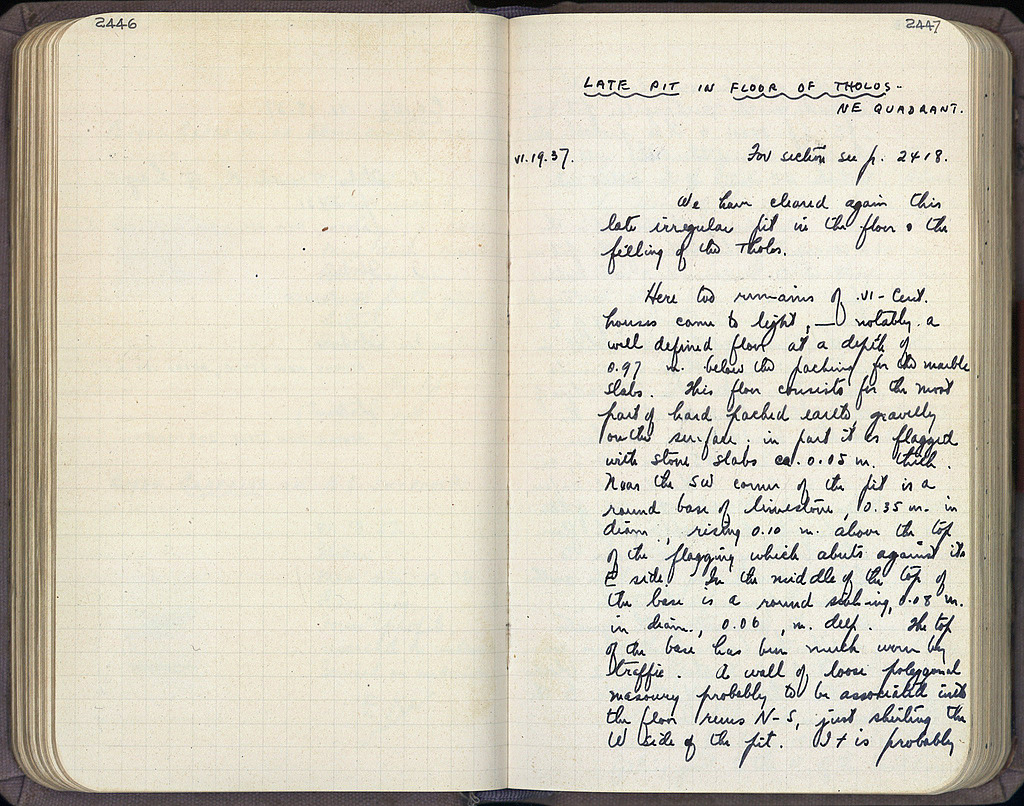 2446
2447
LATE PIT IN FLOOR OF THOLOS -
NE QUADRANT.
VI.19.37.
For section see p. 2418.
We have cleared again this
late irregular pit in the floor & the
filling of the Tholos.
Here too remains of VI-Cent.
houses came to light, — notably a
well defined floor at a depth of
0.97 m. below the packing for the marble
slabs. This floor consists for the most
part of hard packed earth, gravelly
on the surface. in part it is flagged
with stone slabs ca. 0.05 m. thick.
Near the SW corner of the pit is a
round base of limestone, 0.35 m. in
diam., rising 0.10 m. above the top
of the flagging which abuts against its
E side. In the middle of the top of
the base is a round sinking, 0.08 m.
in diam., 0.06 m. deep. The top
of the base has been much worn by
traffic. A wall of loose polygonal
masonry probably to be associated with
the floor runs N-S, just skirting the
W side of the pit. It is probably